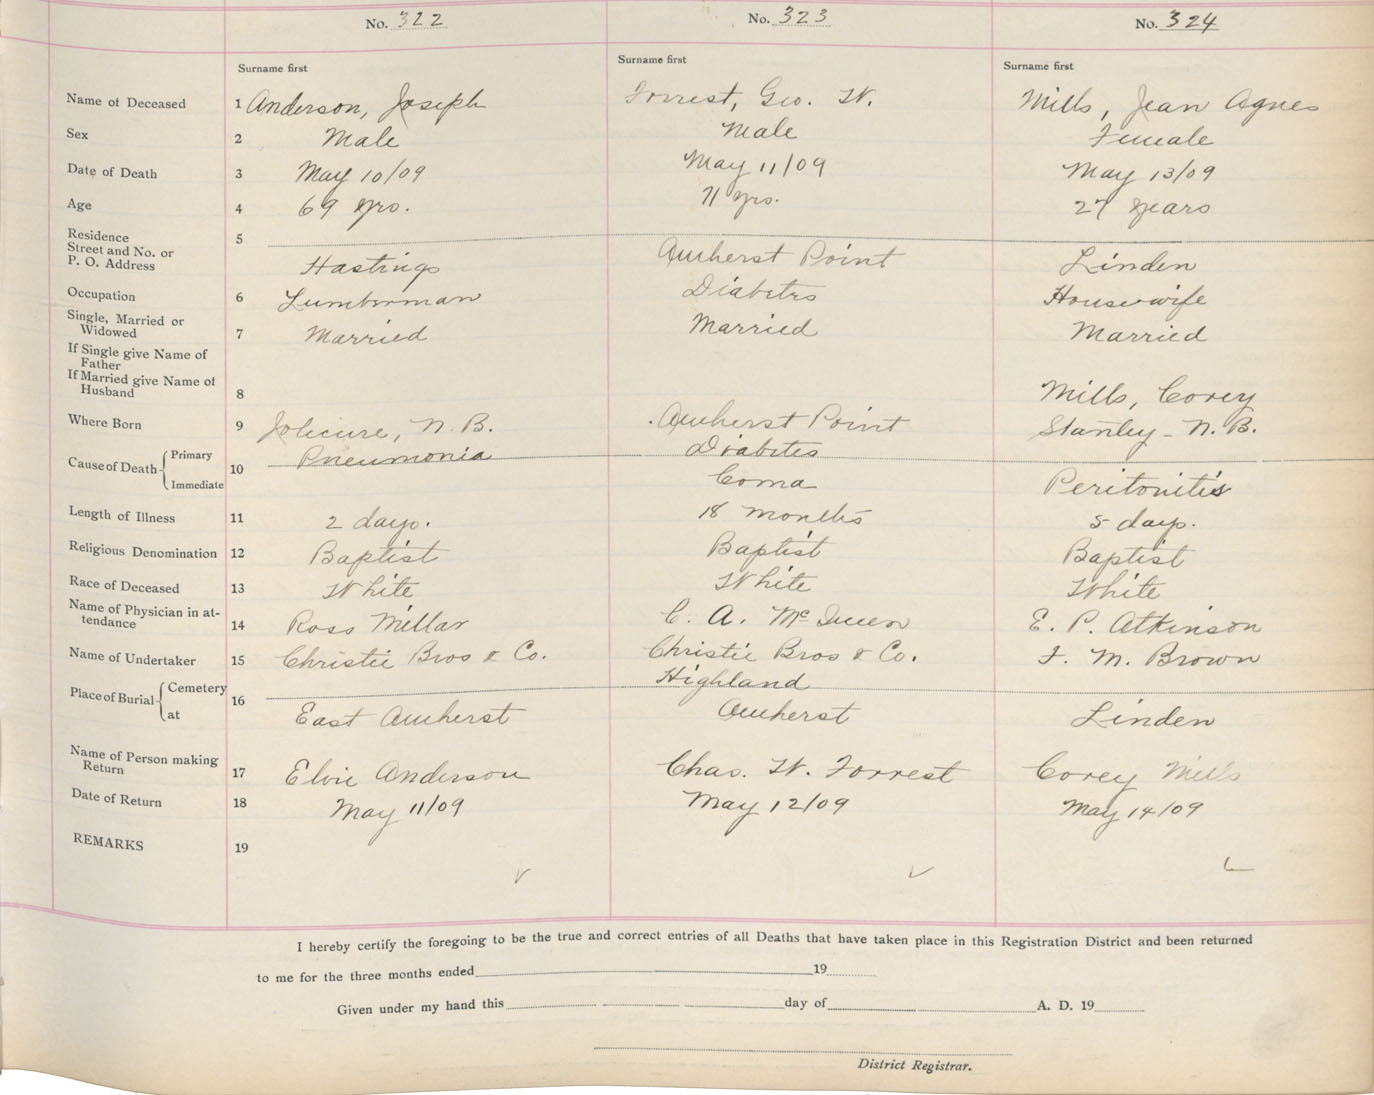 No. 322 No. 323 No. 324
Surname first Surname first Surname first
Name of Deceased 1 Anderson, Joseph Forrest, Geo. W. Mills, Jean Agnes
Sex 2 Male Male Female
Date of Death 3 May 10/09 May 11/09 May 13/09
Age 4 69 yrs. 71 yrs. 27 years
Residence
Street and No. or
P. O. Address 5 Hastings Amherst Point Linden
Occupation 6 Lumberman Diabetes Housewife
Single, Married or
Widowed 7 Married Married Married
If Single give Name of
Father
If Married give Name of
Husband 8 Mills, Corey
Where Born 9 Jolicure, N. B. Amherst Point Stanley - N. B.
Cause of Death Primary 10 Pneumonia Diabetes
Immediate Coma Peritonitis
Length of Illness 11 2 days. 18 months 5 days.
Religious Denomination 12 Baptist Baptist Baptist
Race of Deceased 13 White White White
Name of Physician in at-
tendance 14 Ross Millar C. A. McQueen E. P. Atkinson
Name of Undertaker 15 Christie Bros & Co. Christie Bros & Co. F. M. Brown
Place of Burial Cemetery 16 Highland
at East Amherst Amherst Linden
Name of Person making
Return 17 Elvie Anderson Chas. W. Forrest Corey Mills
Date of Return 18 May 11/09 May 12/09 May 14/09
REMARKS 19
I hereby certify the foregoing to be the true and correct entries of all Deaths that have taken place in this Registration District and been returned
to me for the three months ended 19
Given under my hand this day of A. D. 19
District Registrar.